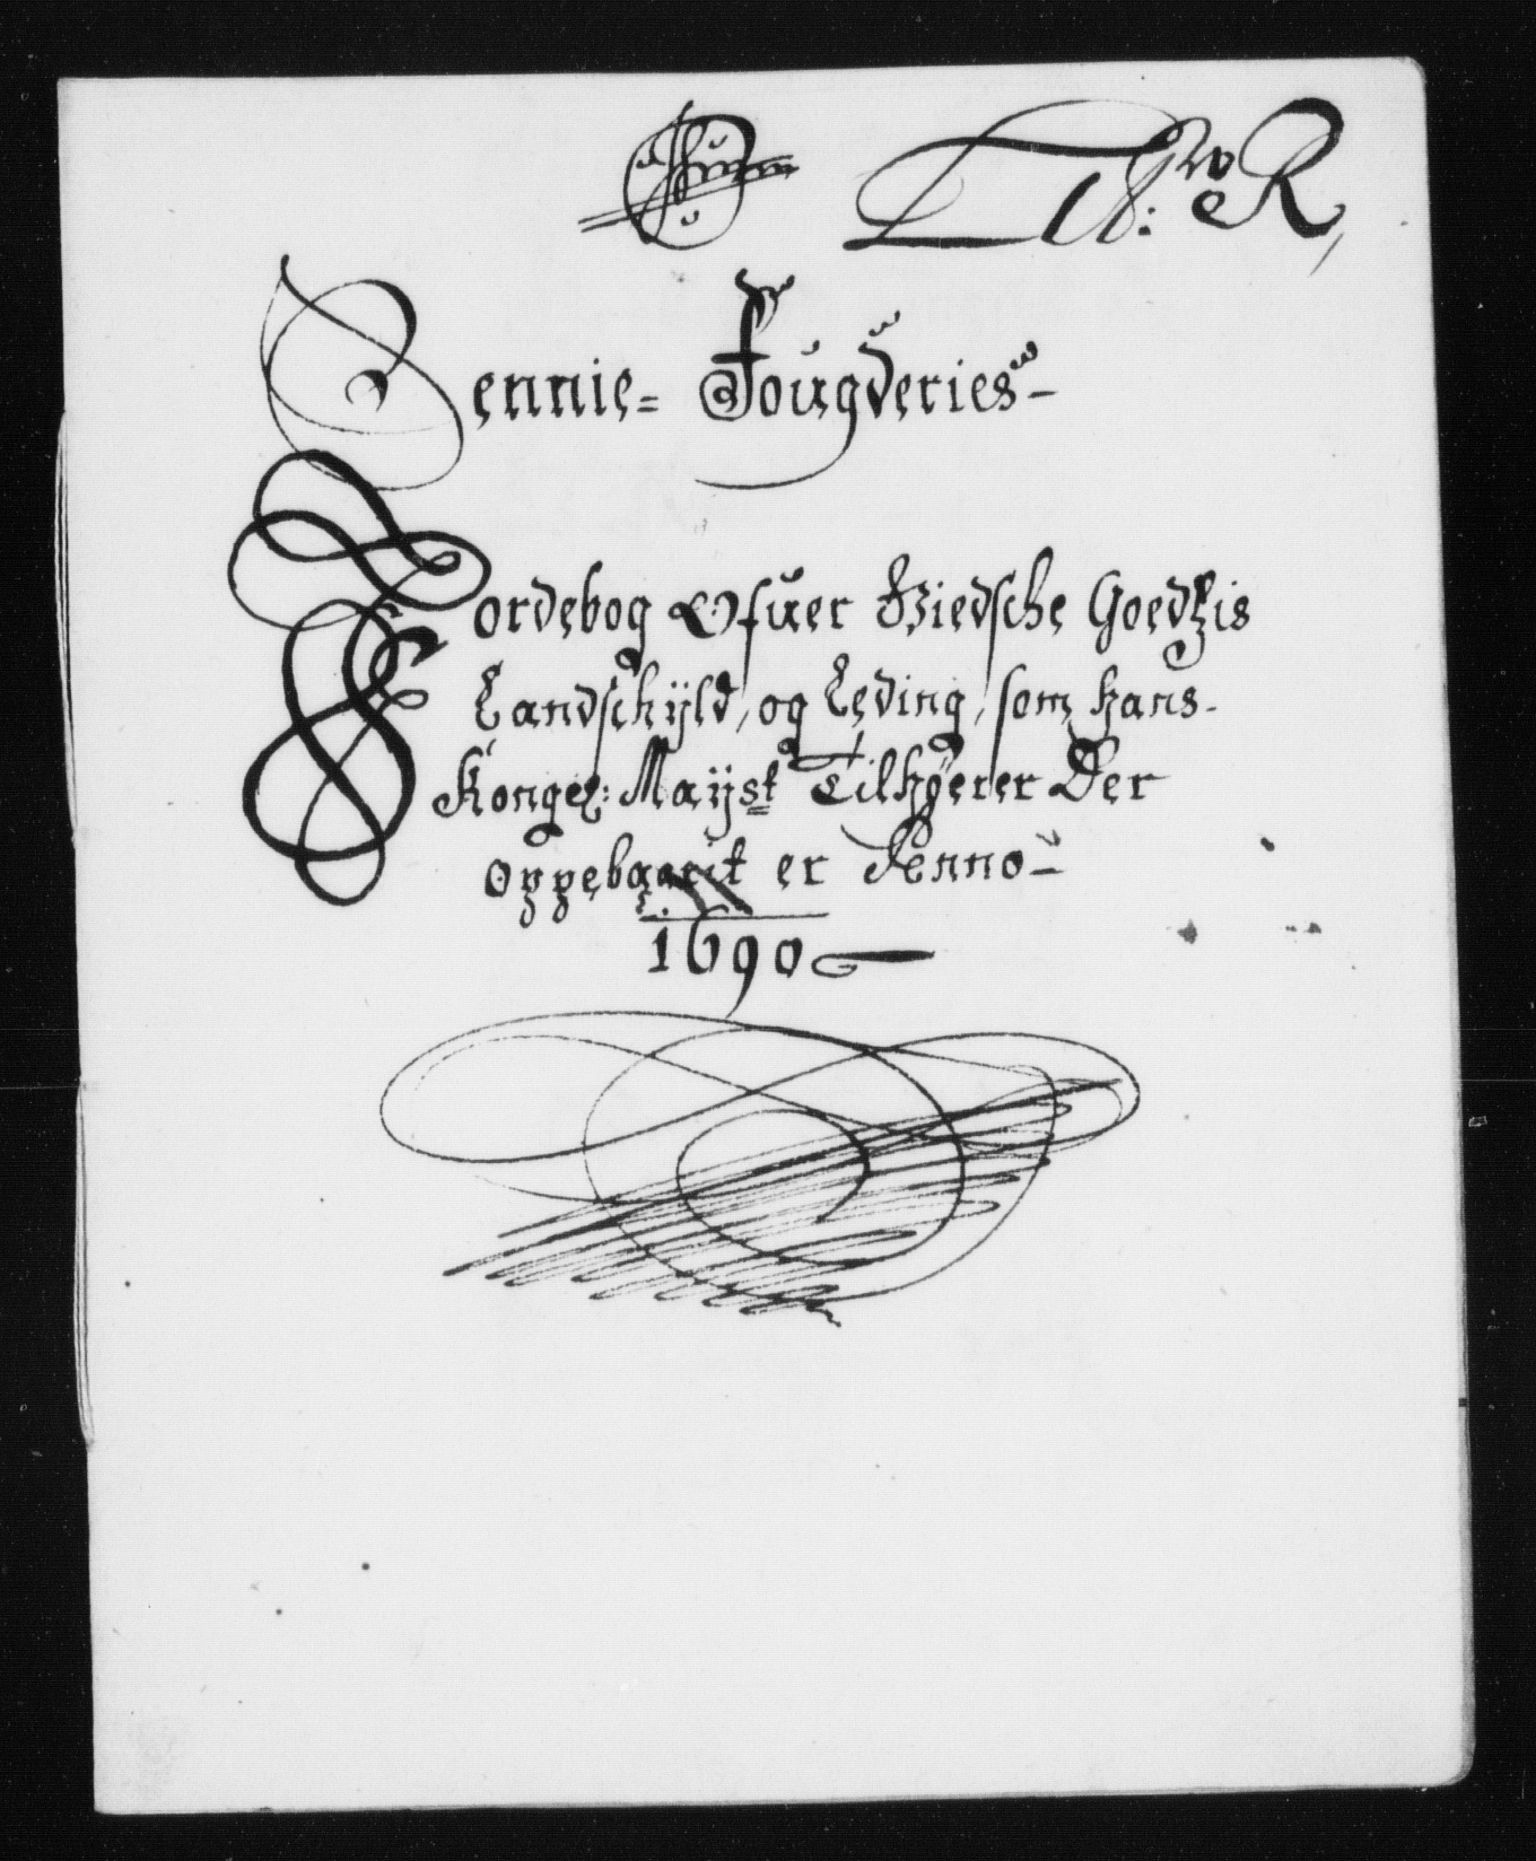 Sennie= Fougderies-
Jordebog Ofuer Giedsche Goedzis
Landschÿld, og Leding, som hans-
Kongel: Maÿst Tilhører Der
oppebaarit er Anno-
1690